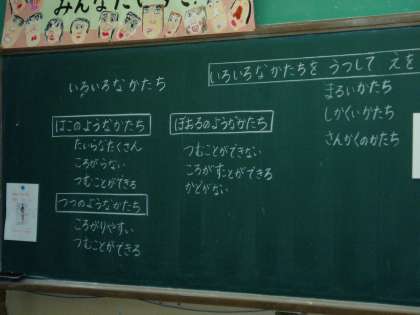 みんなだいすき
いろいろなかたち
いろいろなかたちを うつして えを
まるいかたち
しかくいかたち
さんかくのかたち
はこのようなかたち
たいらなたくさん
ころがらない
つむことができる
つつのようなかたち
ころがりやすい
つむことができる
ぼおるのようなかたち
つむことができない
ころがすことができる
かどがない